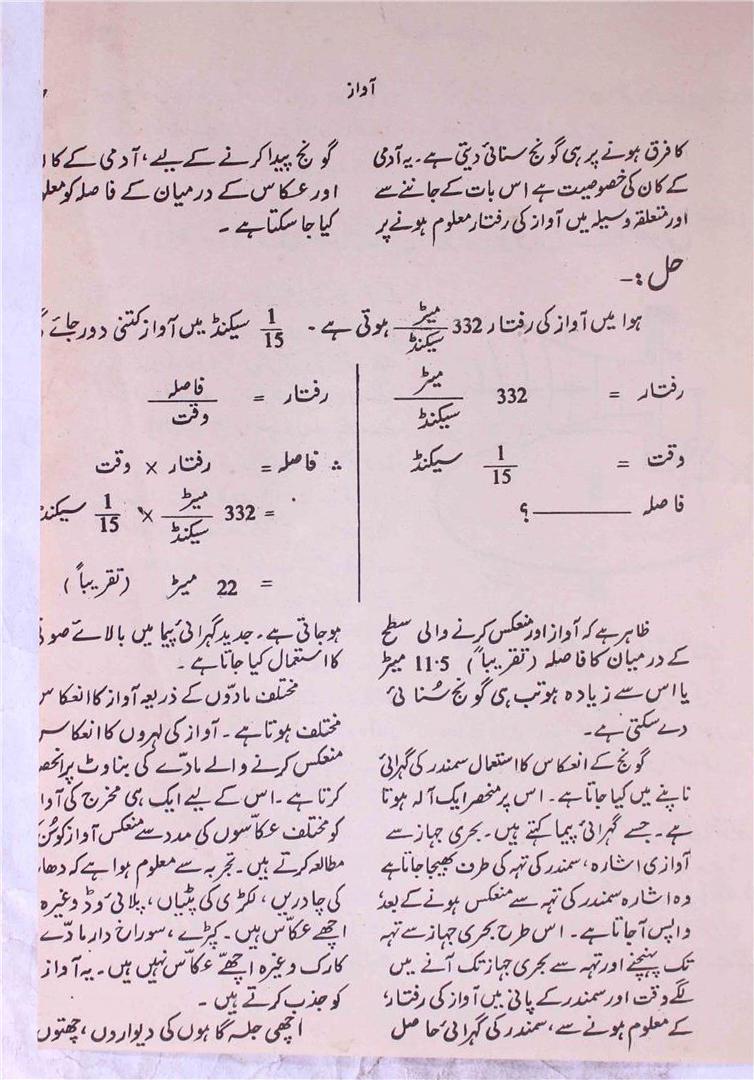 آواز
کا فرق ہونے پر ہی گونج سنائی دیتی ہے۔ یہ آدمی
کے کان کی خصوصیت ہے اس بات کے جاننے سے
اور متعلقہ وسیلہ میں آواز کی رفتار معلوم ہونے پر
گونج پیدا کرنے کے لیے، آدمی کے
اور عکاس کے درمیان کے فاصلہ کو
کیا جا سکتا ہے ۔
حل :۔
ہوا میں آواز کی رفتار 332 میٹر/سیکنڈ ہوتی ہے ۔ 1/15 سیکنڈ میں آواز کتنی دور جائے
رفتار = 332 میٹر/سیکنڈ
وقت = 1/15 سیکنڈ
فاصلہ ______ ؟
رفتار = فاصلہ/وقت
∴ فاصلہ = رفتار × وقت
= 332 میٹر/سیکنڈ × 1/15 سیکنڈ
= 22 میٹر (تقریباً)
ظاہر ہے کہ آواز اور منعکس کرنے والی سطح
کے درمیان کا فاصلہ (تقریباً) 11.5 میٹر
یا اس سے زیادہ ہو تب ہی گونج سُنائی
دے سکتی ہے۔
گونج کے انعکاس کا استعمال سمندر کی گہرائی
ناپنے میں کیا جاتا ہے۔ اس پر منحصر ایک آلہ ہوتا
ہے۔ جسے گہرائی پیما کہتے ہیں۔ بحری جہاز سے
آوازی اشارہ، سمندر کی تہہ کی طرف بھیجا جاتا ہے
وہ اشارہ سمندر کی تہہ سے منعکس ہونے کے بعد
واپس آجاتا ہے۔ اس طرح بحری جہاز سے تہہ
تک پہنچنے اور تہہ سے بحری جہاز تک آنے میں
لگے وقت اور سمندر کے پانی میں آواز کی رفتار،
کے معلوم ہونے سے، سمندر کی گہرائی حاصل
ہوجاتی ہے۔ جدید گہرائی پیما میں بالائے
کا استعمال کیا جاتا ہے ۔
مختلف مادّوں کے ذریعہ آواز کا
مختلف ہوتا ہے ۔ آواز کی لہروں کا
منعکس کرنے والے مادے کی بناوٹ پر
کرتا ہے۔ اس کے لیے ایک ہی مخرج کی
کو مختلف عکاسوں کی مدد سے منعکس آواز کو
مطالعہ کرتے ہیں۔ تجربہ سے معلوم ہوا ہے کہ
کی چادریں، لکڑی کی پٹیاں، پلائی وڈ وغیرہ
اچھے عکاس ہیں۔ کپڑے، سوراخ دار مادے
کارک وغیرہ اچھے عکاس نہیں ہیں۔ یہ آواز
کو جذب کرتے ہیں ۔
اچھی جلسہ گاہوں کی دیواروں، چھتوں